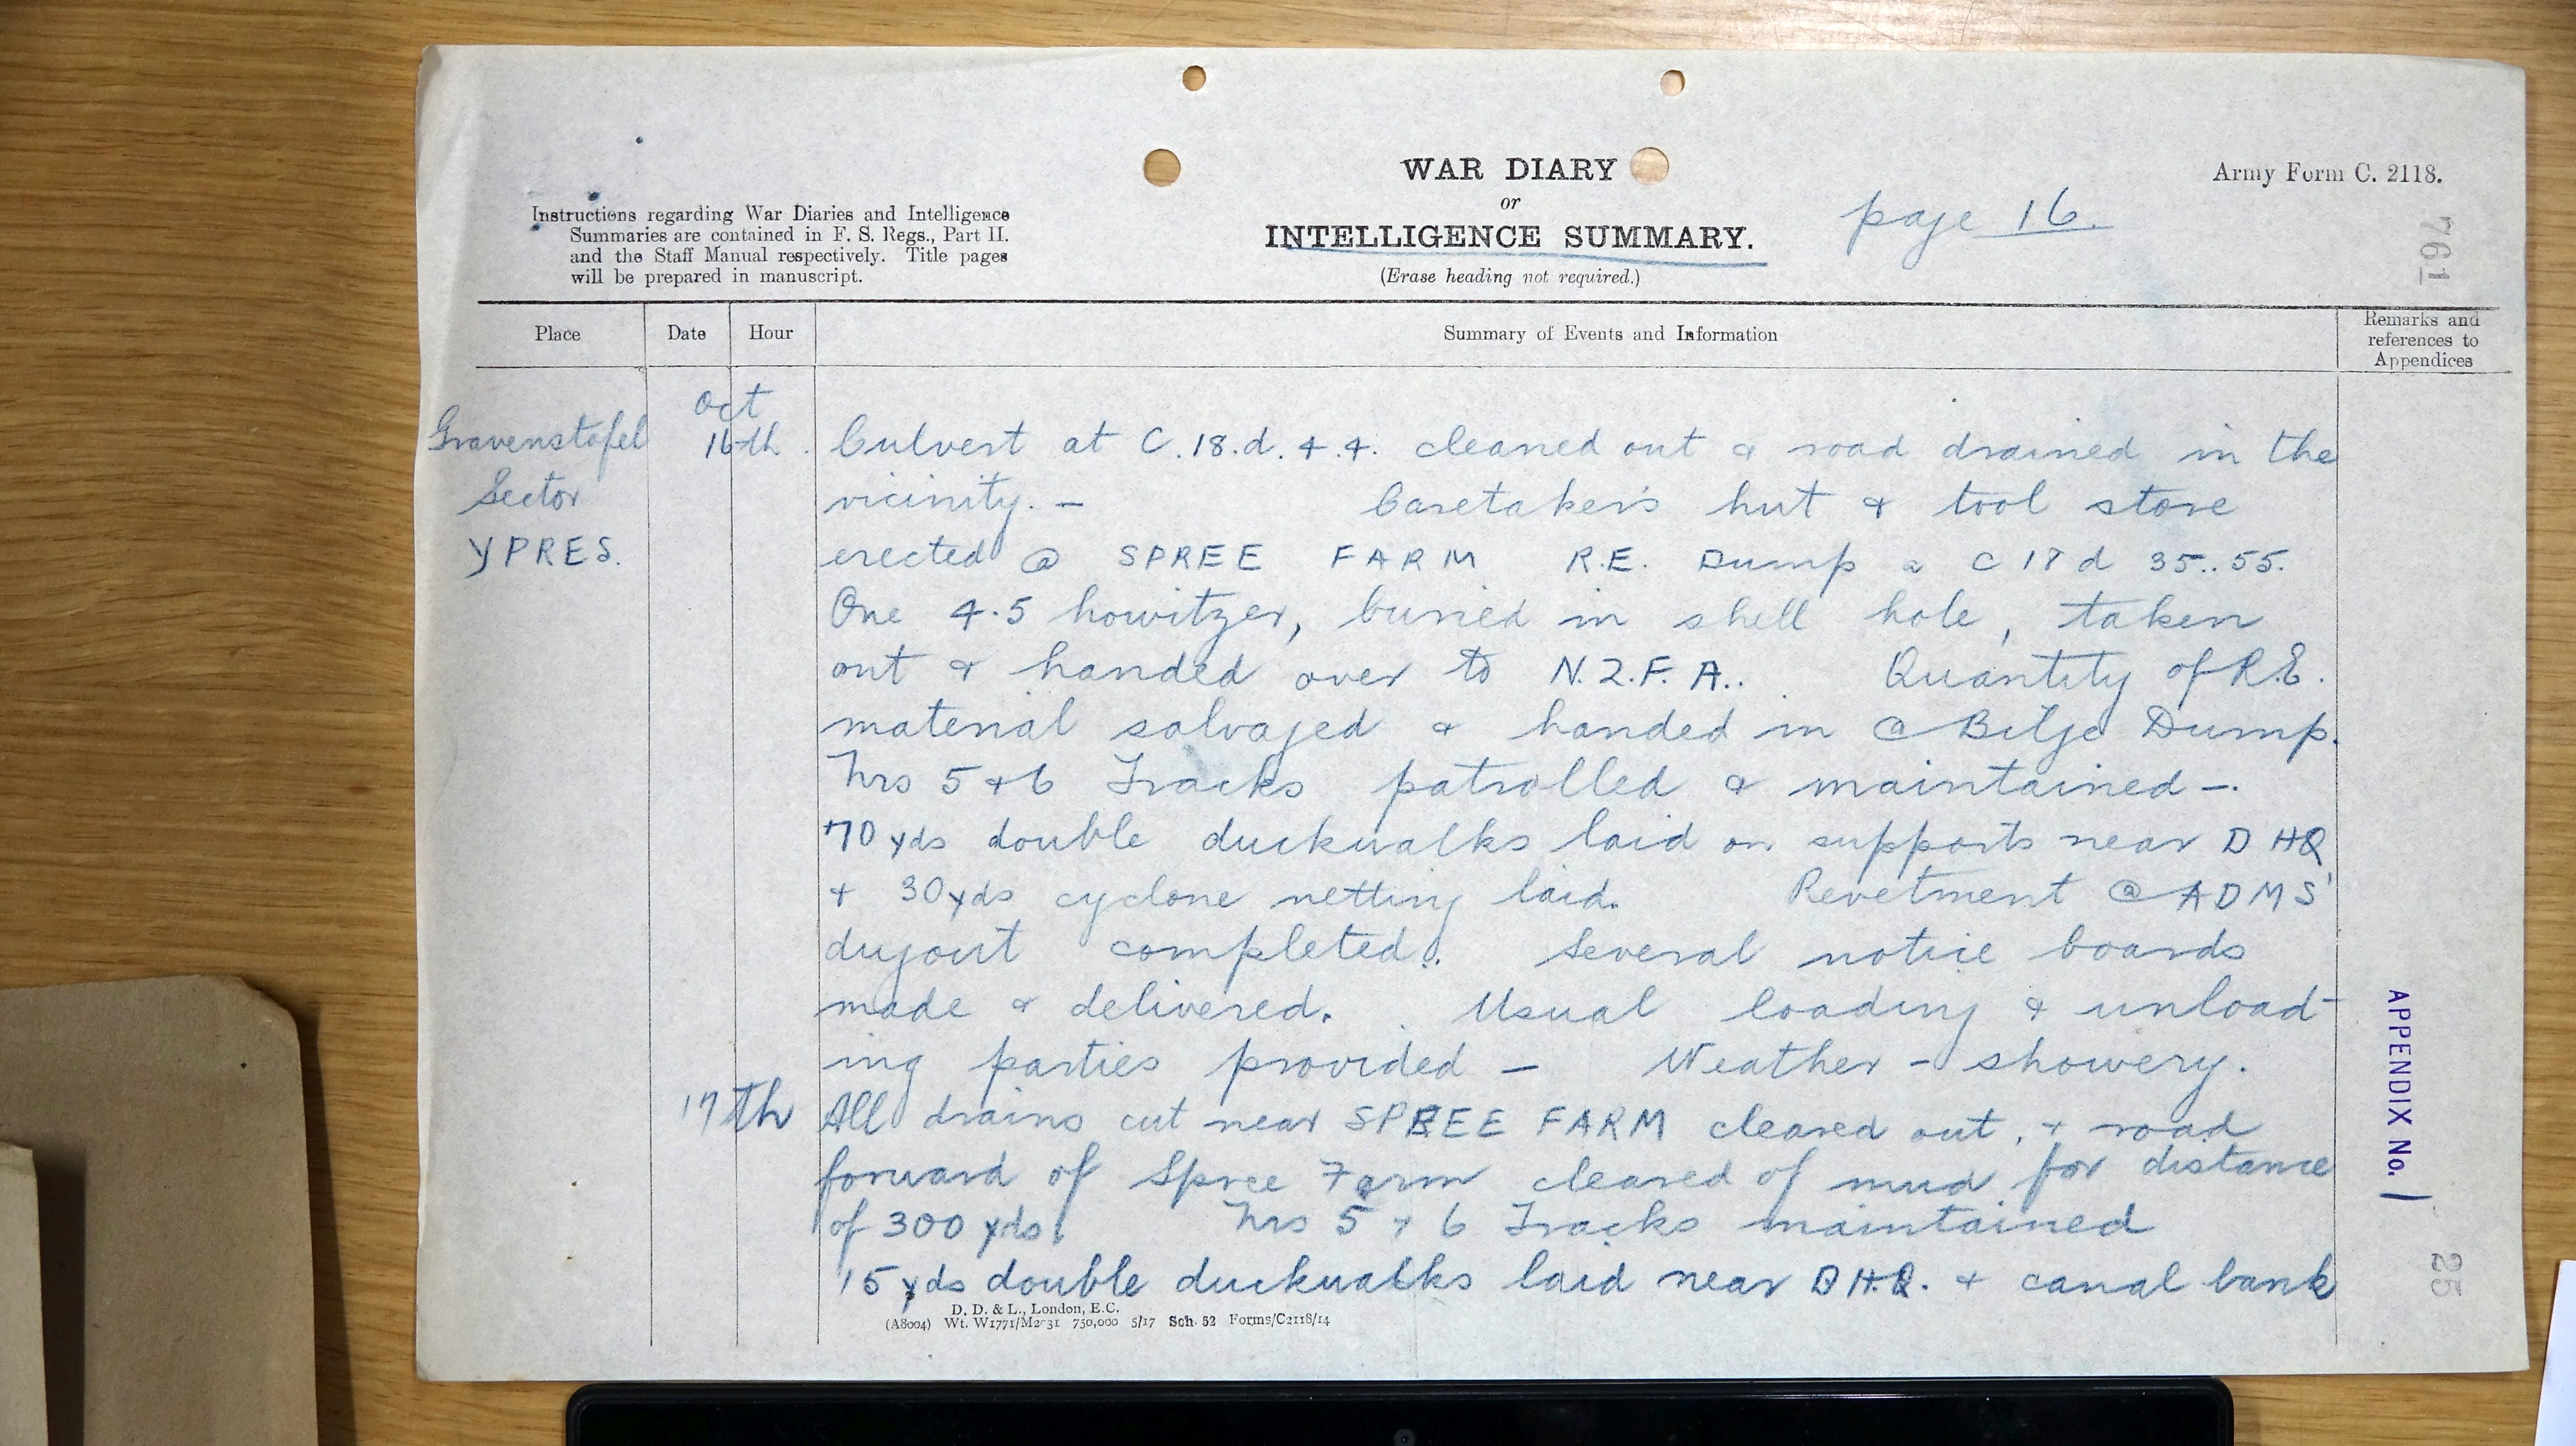 WAR DIARY
or
INTELLIGENCE SUMMARY.
(Erase heading not required.)
page 16.
Army Form C. 2118.
761
Instructions regarding War Diaries and Intelligence
Summaries are contained in F. S. Regs., Part II.
and the Staff Manual respectively. Title pages
will be prepared in manuscript.
Place Date Hour Summary of Events and Information Remarks and references to Appendices
Gravenstafel
Sector
YPRES.
Oct
16th. Culvert at C.18.d.4.4. cleaned out & road drained in the
vicinity. - Caretaker's hut & tool store
erected @ SPREE FARM R.E. Dump C 18 d 35..55.
One 4.5 howitzer, buried in shell hole, taken
out & handed over to N.Z.F.A.. Quantity of R.E.
material salvaged & handed in @ Bilge Dump.
Nrs 5 & 6 Tracks patrolled & maintained -.
70 yds double duckwalks laid on supports near D HQ
+ 30 yds cyclone netting laid. Revetment @ ADMS'
dugout completed. Several notice boards
made & delivered. Usual loading & unload-
ing parties provided - Weather - showery.
17th All drains cut near SPREE FARM cleared out, + road
forward of Spree Farm cleared of mud for distance
of 300 yds. Nrs 5 & 6 Tracks maintained
15 yds double duckwalks laid near D.H.Q. + canal bank
APPENDIX No. 1
25
D. D. & L., London, E.C.
(A8004) Wt. W1771/M2031 750,000 5/17 Sch. 52 Forms/C2118/14